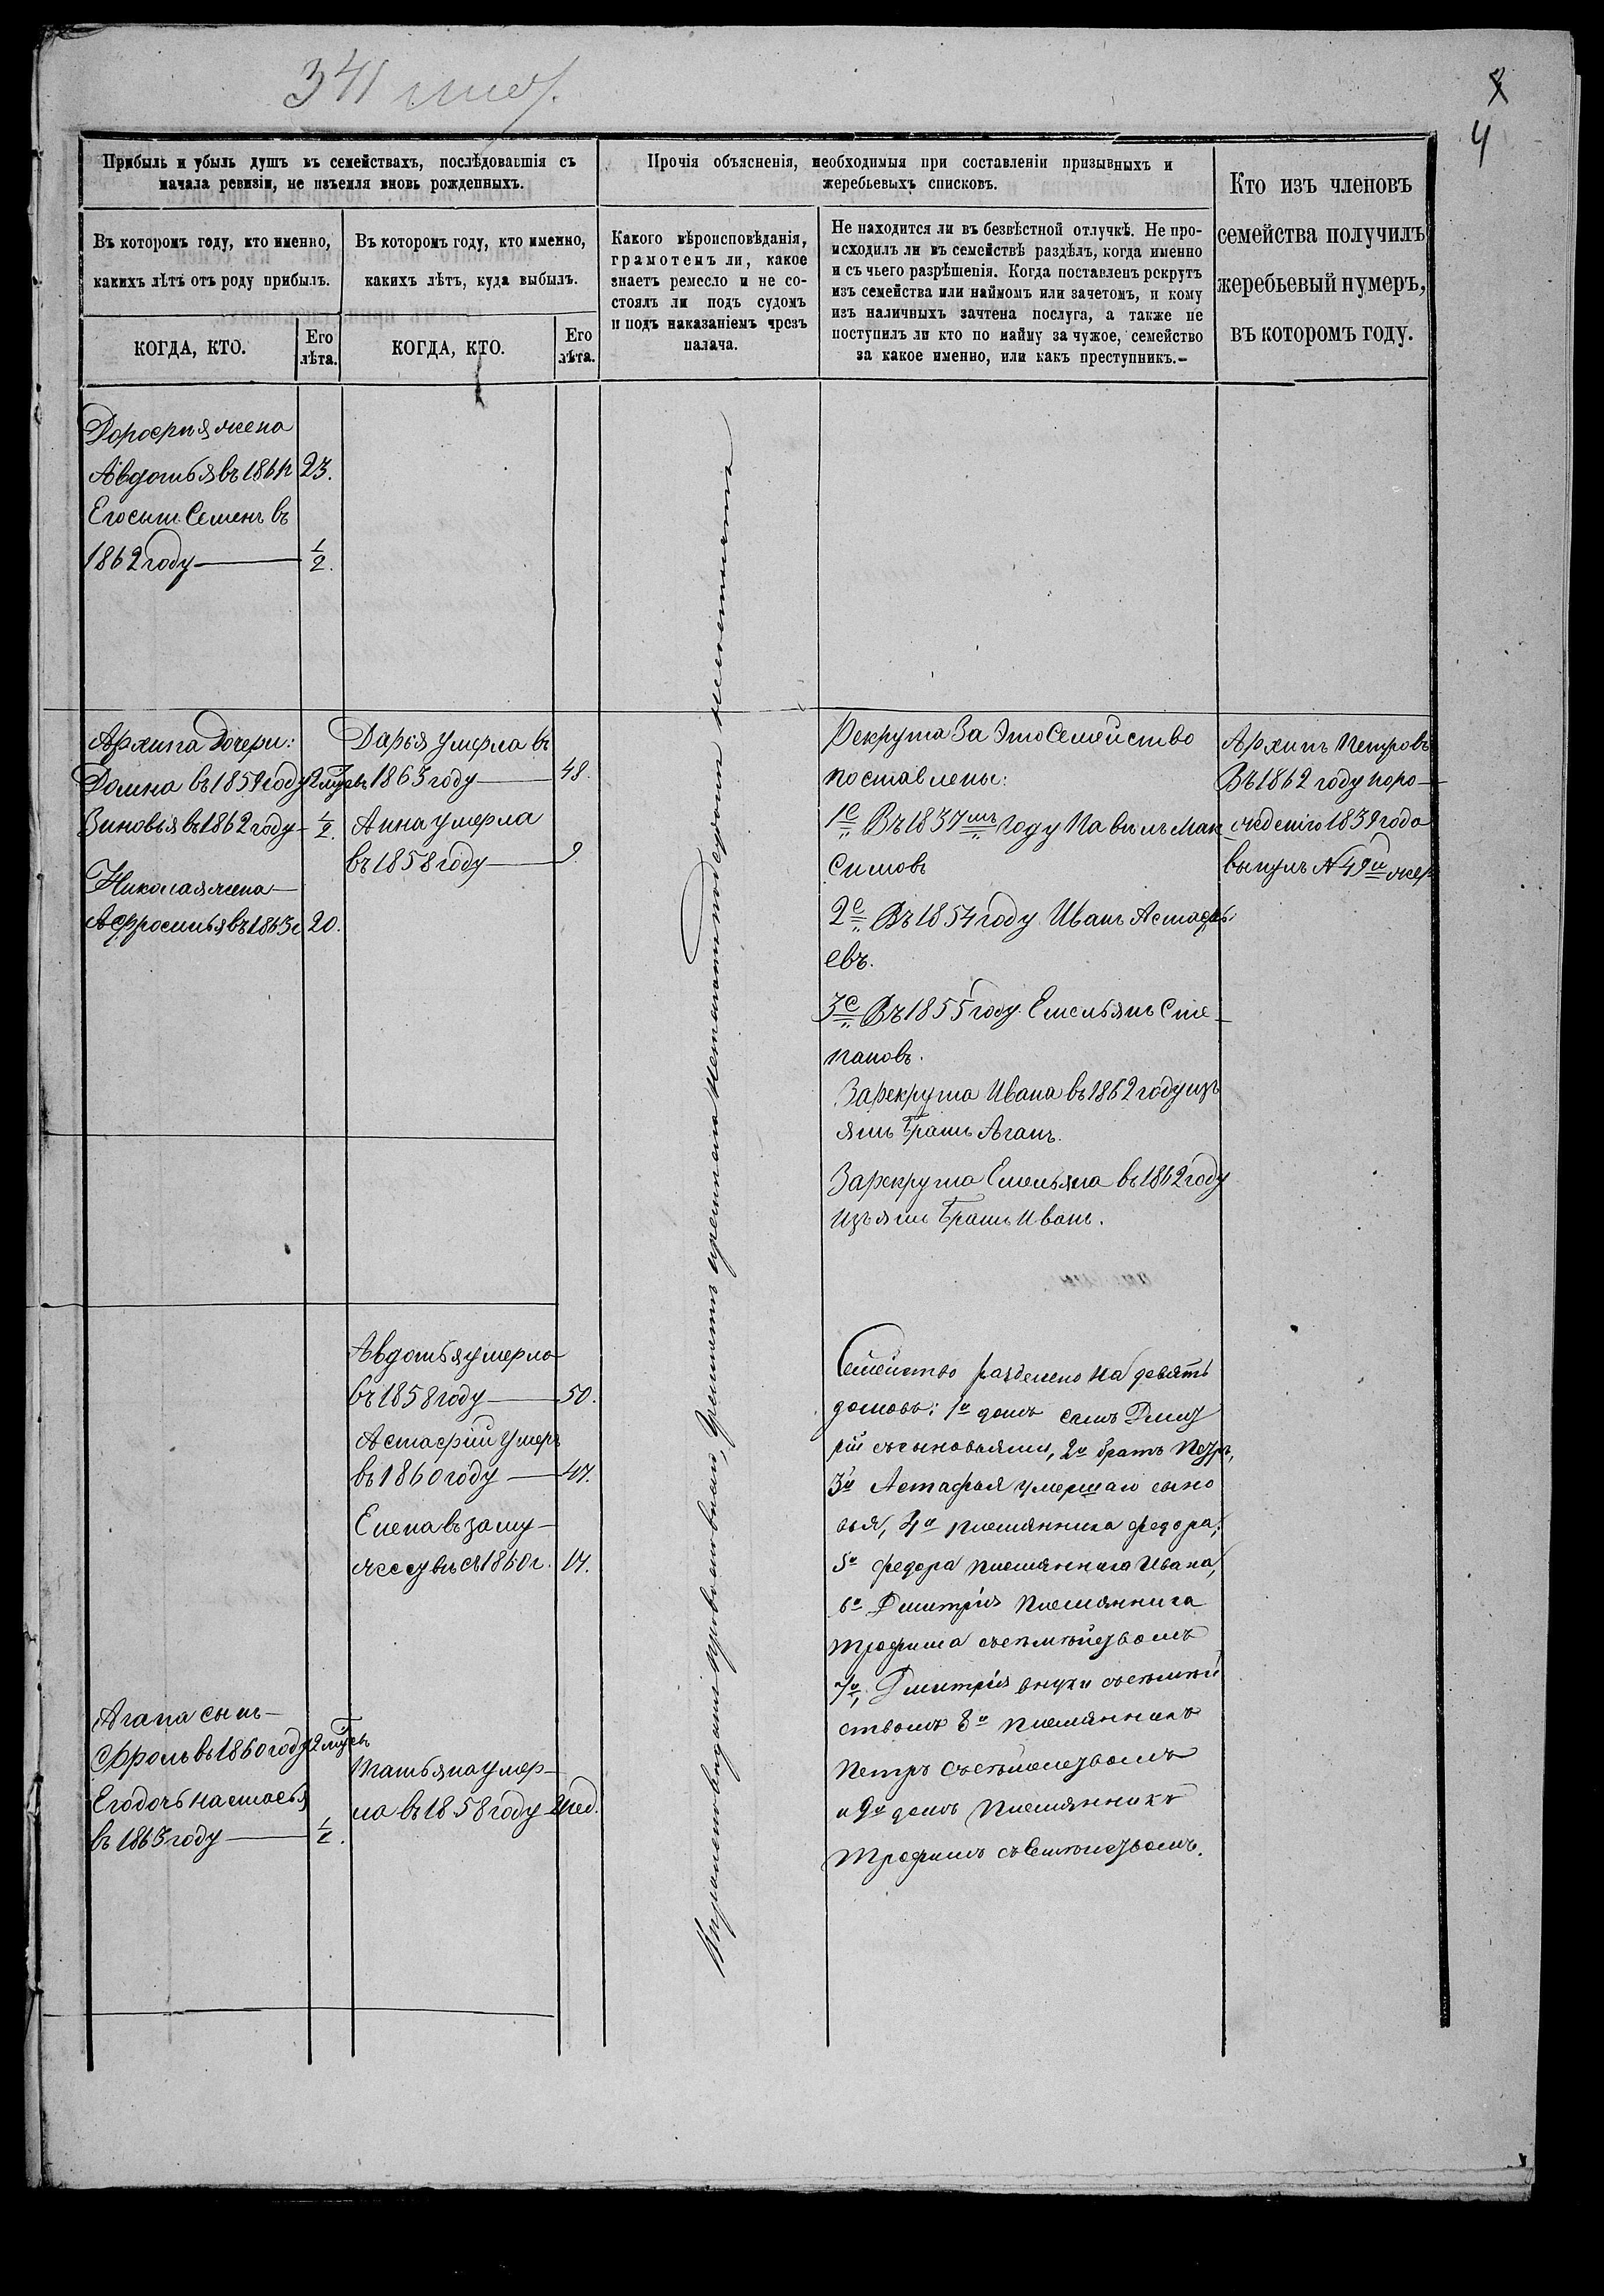 341
4
Прибыль и убыль душъ въ семействахъ, послѣдовавшія съ
начала ревизіи, не изъемля вновь рожденныхъ.
Въ которомъ году, кто именно,
какихъ лѣтъ отъ роду прибылъ.
КОГДА, КТО.
Его
лѣта.
Въ которомъ году, кто именно,
какихъ лѣтъ, куда выбылъ.
КОГДА, КТО.
Его
лѣта.
Прочія объясненія, необходимыя при составленіи призывныхъ и
жеребьевыхъ списковъ.
Какого вѣроисповѣданія,
грамотенъ ли, какое
знаетъ ремесло и не со-
стоялъ ли подъ судомъ
и подъ наказаніемъ чрезъ
палача.
Не находится ли въ безвѣстной отлучкѣ. Не про-
исходилъ ли въ семействѣ раздѣлъ, когда именно
и съ чьего разрѣшенія. Когда поставленъ рекрутъ
изъ семейства или наймомъ или зачетомъ, и кому
изъ наличныхъ зачтена послуга, а также не
поступилъ ли кто по найму за чужое, семейство
за какое именно, или какъ преступникъ.–
Кто изъ членовъ
семейства получилъ
жеребьевый нумеръ,
въ которомъ году.
Дорофѣя жена
Авдотья въ 1861 23.
Его сынъ Семенъ въ
1862 году — 1/2.
Архипа дочери:
Домна въ 1859 году
Зиновья въ 1862 году – 1/2.
Николая жена—
Афросинья въ 1863 20.
Агапа сынъ—
Фролъ въ 1860 году
Его дочь Настасья
въ 1863 году — 1/2.
Дарья умерла въ
1863 году — 48.
Анна умерла
въ 1858 году — 9
Авдотья умерла
въ 1858 году — 50.
Астафій умеръ
въ 1860 году — 47.
Елена въ заму-
жество въ 1860 г. 17.
Татьяна умер-
ла въ 1858 году 2 нед.
Вѣроисповѣданія православнаго, грамотѣ
Рекрута за это Семейство
поставлены:
1е Въ 1837мъ году Павилъ Мак
симовъ
2е Въ 1854 году Иванъ Астафь
евъ.
3е Въ 1855 году Емельянъ Сте-
пановъ.
За рекрута Ивана въ 1862 году изъ
ятъ братъ Агапъ.
За рекрута Емельяна въ 1862 году
изъятъ братъ Иванъ.
Семейство разделено на девять
домовъ: 1й домъ самъ Дмит
рій съ сыновьями, 2й братъ Петръ,
3й Астафья умершаго сыно
вья, 4й племянника Федора,
5й Федора племянника Ивана,
6й Дмитрія племянника
Трофима съ семействомъ
7й Дмитрія внуки съ семей
ствомъ 8й племянникъ
Петръ съ семействомъ
и 9й домъ племянникъ
Трофимъ съ семействомъ.
Архипъ Петровъ
Въ 1862 году поро-
жденію 1839 года
вынулъ № 49й жер.